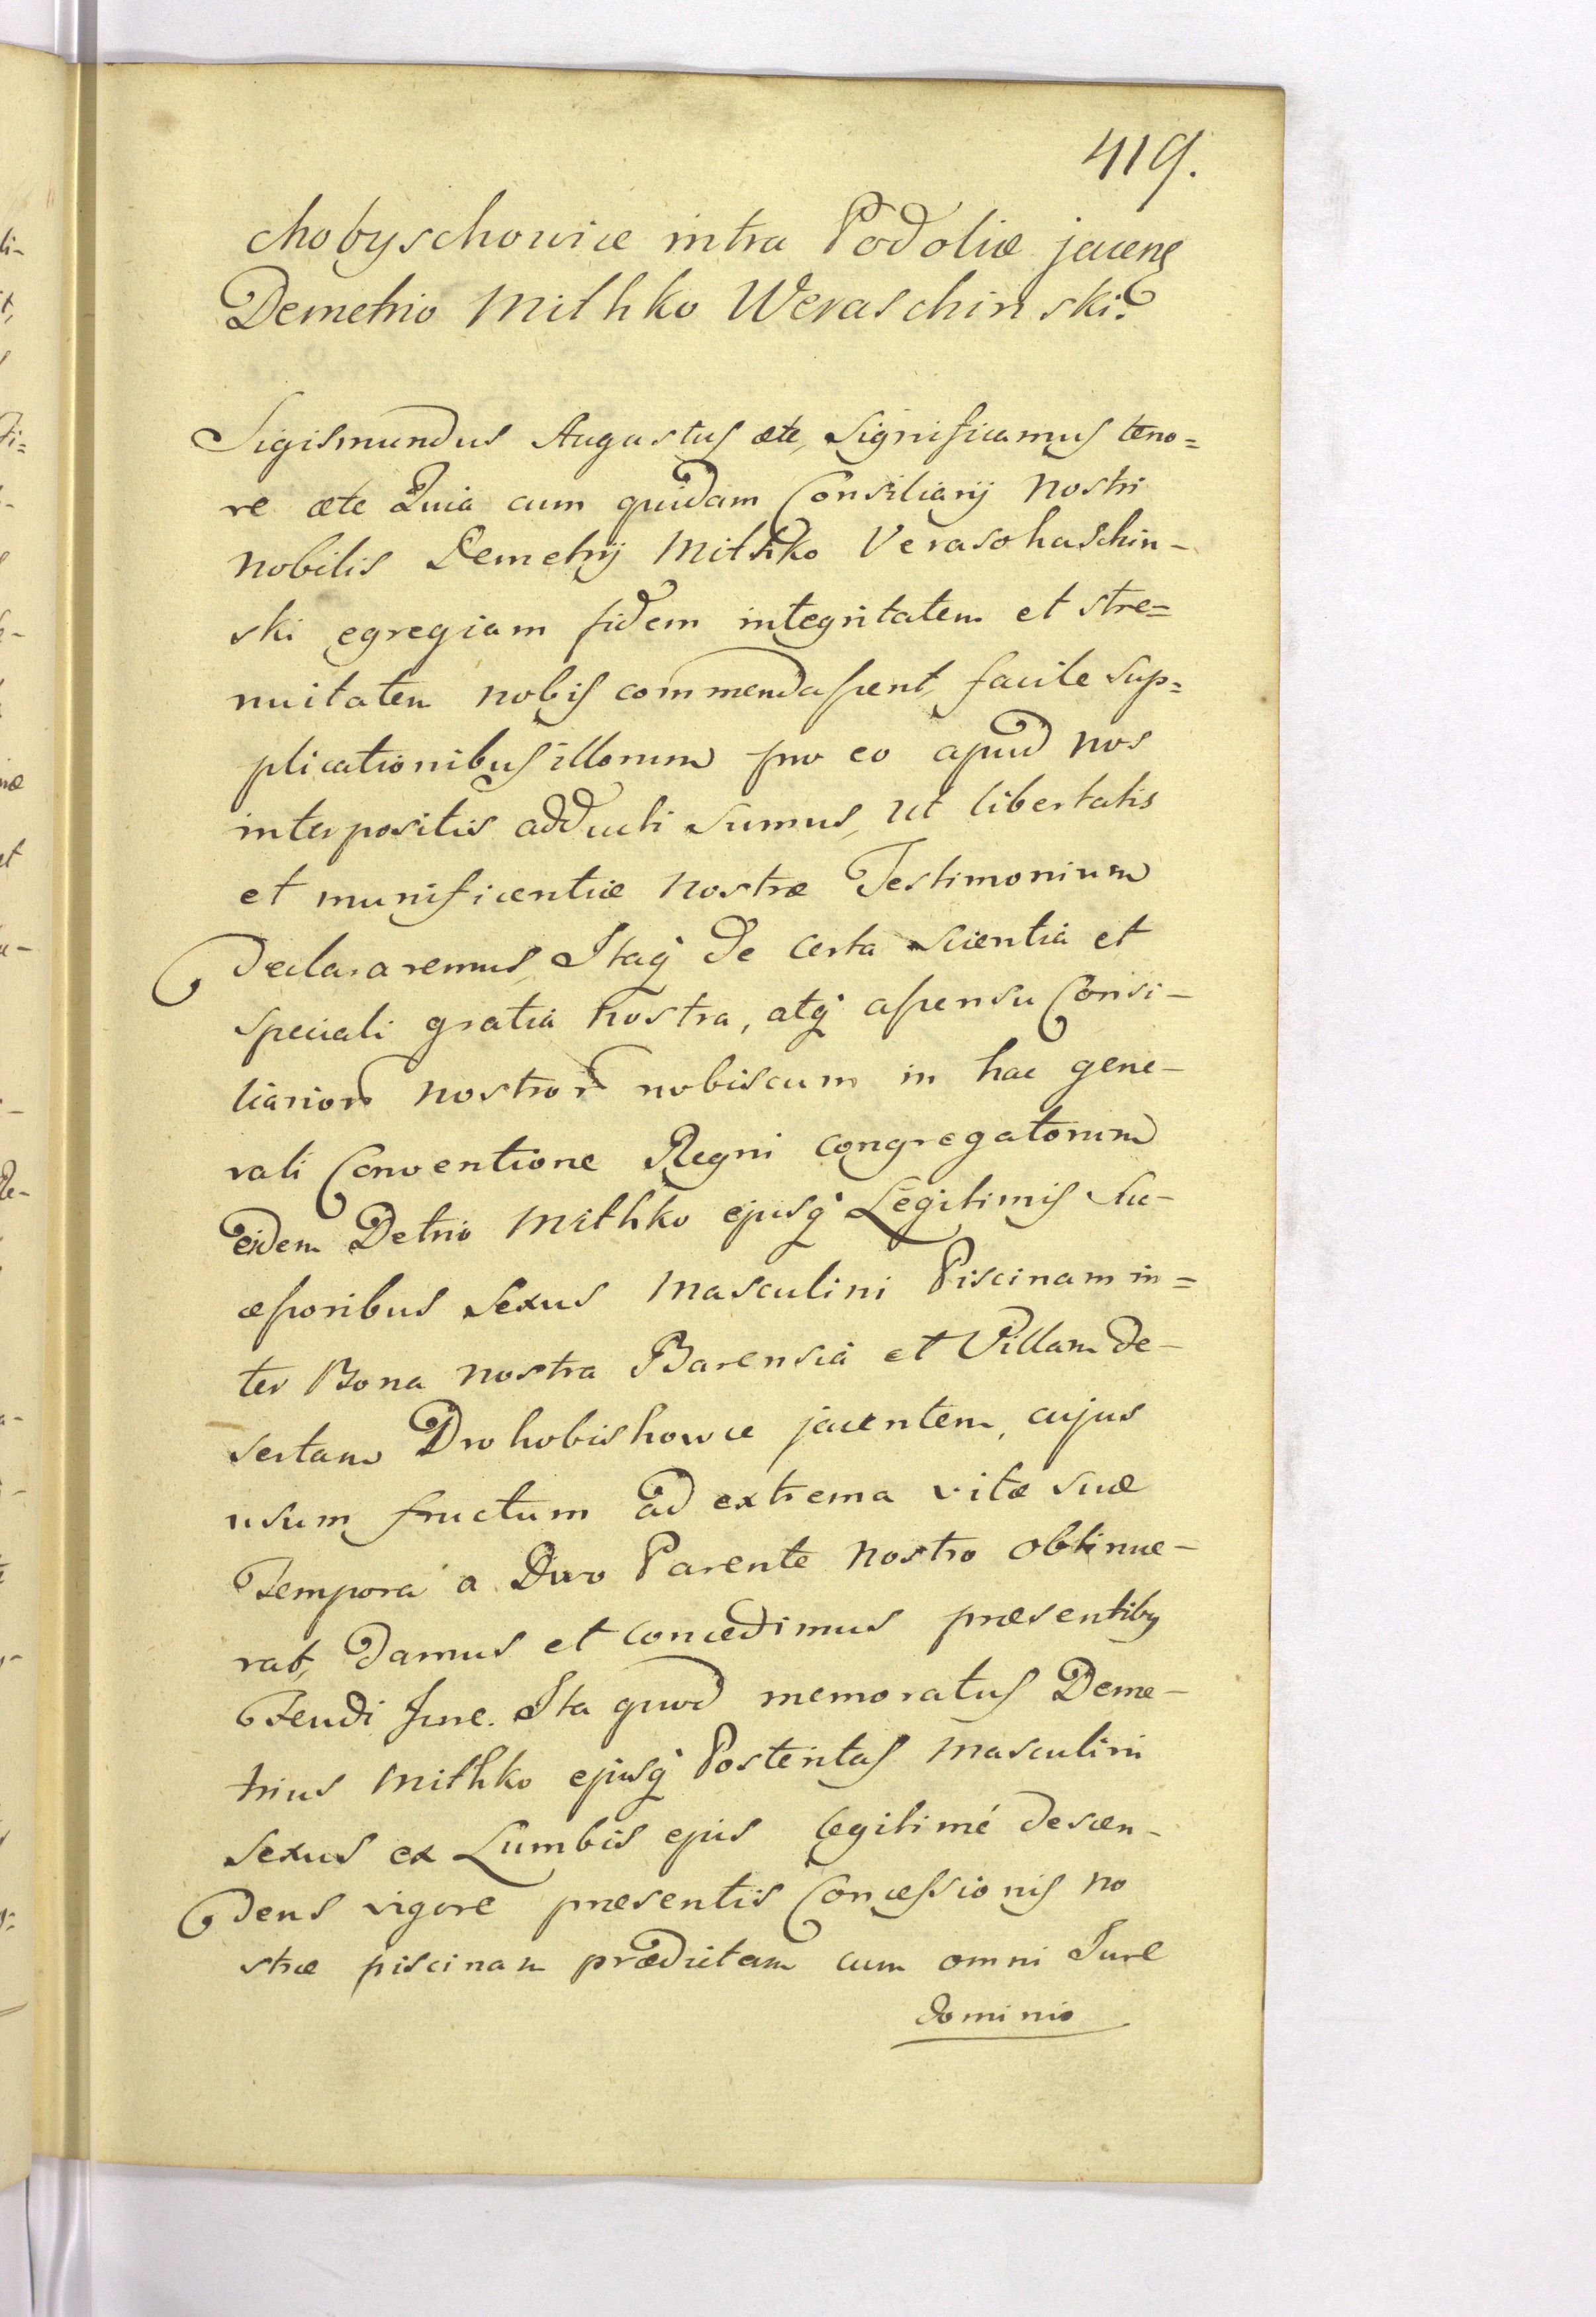 419.
chobyschowice intra Podoliæ jacens
Demetrio Mithko Weraschinski.
Sigismundus Augustus ete, Significamus teno=
re ete Quia cum quidam Consiliarij Nostri
Nobilis Demetrij Mithko Verasohaschin-
ski egregiam fidem integritatem et stre=
nuitatem nobis commendassent, facile Sup=
plicationibus illorum pro eo apud nos
interpositis adducti Sumus, ut libertatis
et munificentiæ Nostræ Testimonium
Declararemus, Itaq de certa Scientia et
Speciali gratia Nostra, atq assensu Consi-
liarior Nostror nobiscum in hac gene-
rali Conventione Regni congregatorum
eidem Detrio Mithko ejusq Legitimis Su-
cessoribus Sexus Masculini Piscinam in=
ter Bona Nostra Barensia et Villam de-
sertam Drohobishowce jacentem, cujus
usum fructum ad extrema vitæ suæ
Tempora a Divo Parente Nostro obtinue-
rat, Damus et concedimus præsentiby
Feudi Jure. Ita quod memoratus Deme-
trius Mithko ejusq Posteritas Masculini
Sexus ex Lumbis ejus legitimé descen-
dens vigore præsentis Concessionis No
stræ piscinam prædictam cum omni Jure
Dominio